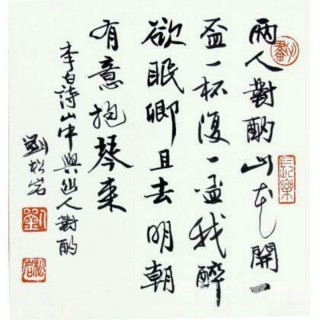 兩人對酌山花開一
盃一杯復一盃我醉
欲眠卿且去明朝
有意抱琴來
李白詩山中與幽人對酌
劉松岩
劉
松岩
長樂